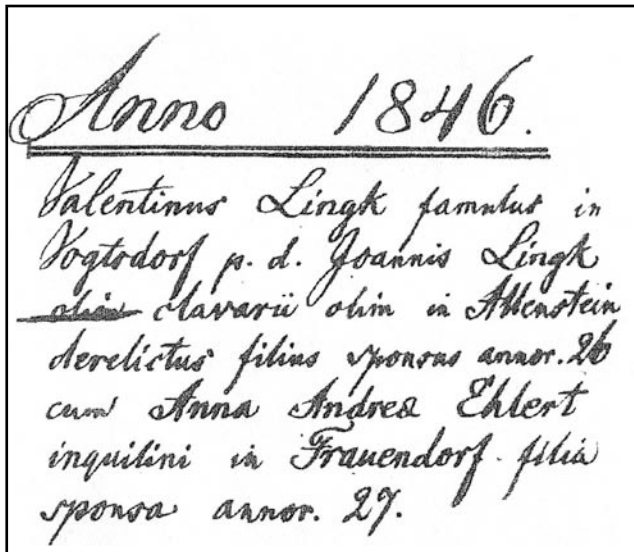 Anno 1846.
Valentinus Lingk famulus in
Vogtsdorf p. d. Joannis Lingk
olim clavarii olim in Allenstein
derelictus filius sponsus annor. 26
cum Anna Andreæ Ehlert
inquilini in Frauendorf filia
sponsa annor. 27.